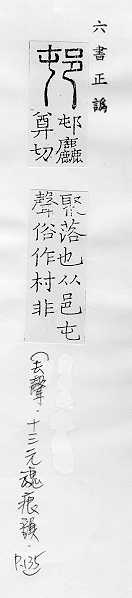 六書正譌
邨
邨麤
尊切
聚落也从邑屯
聲俗作村非
(去聲．十三元魂痕韻．P.135)